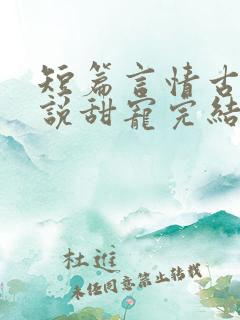 短篇言情古
說甜寵完結
杜進
未經同意禁止轉載